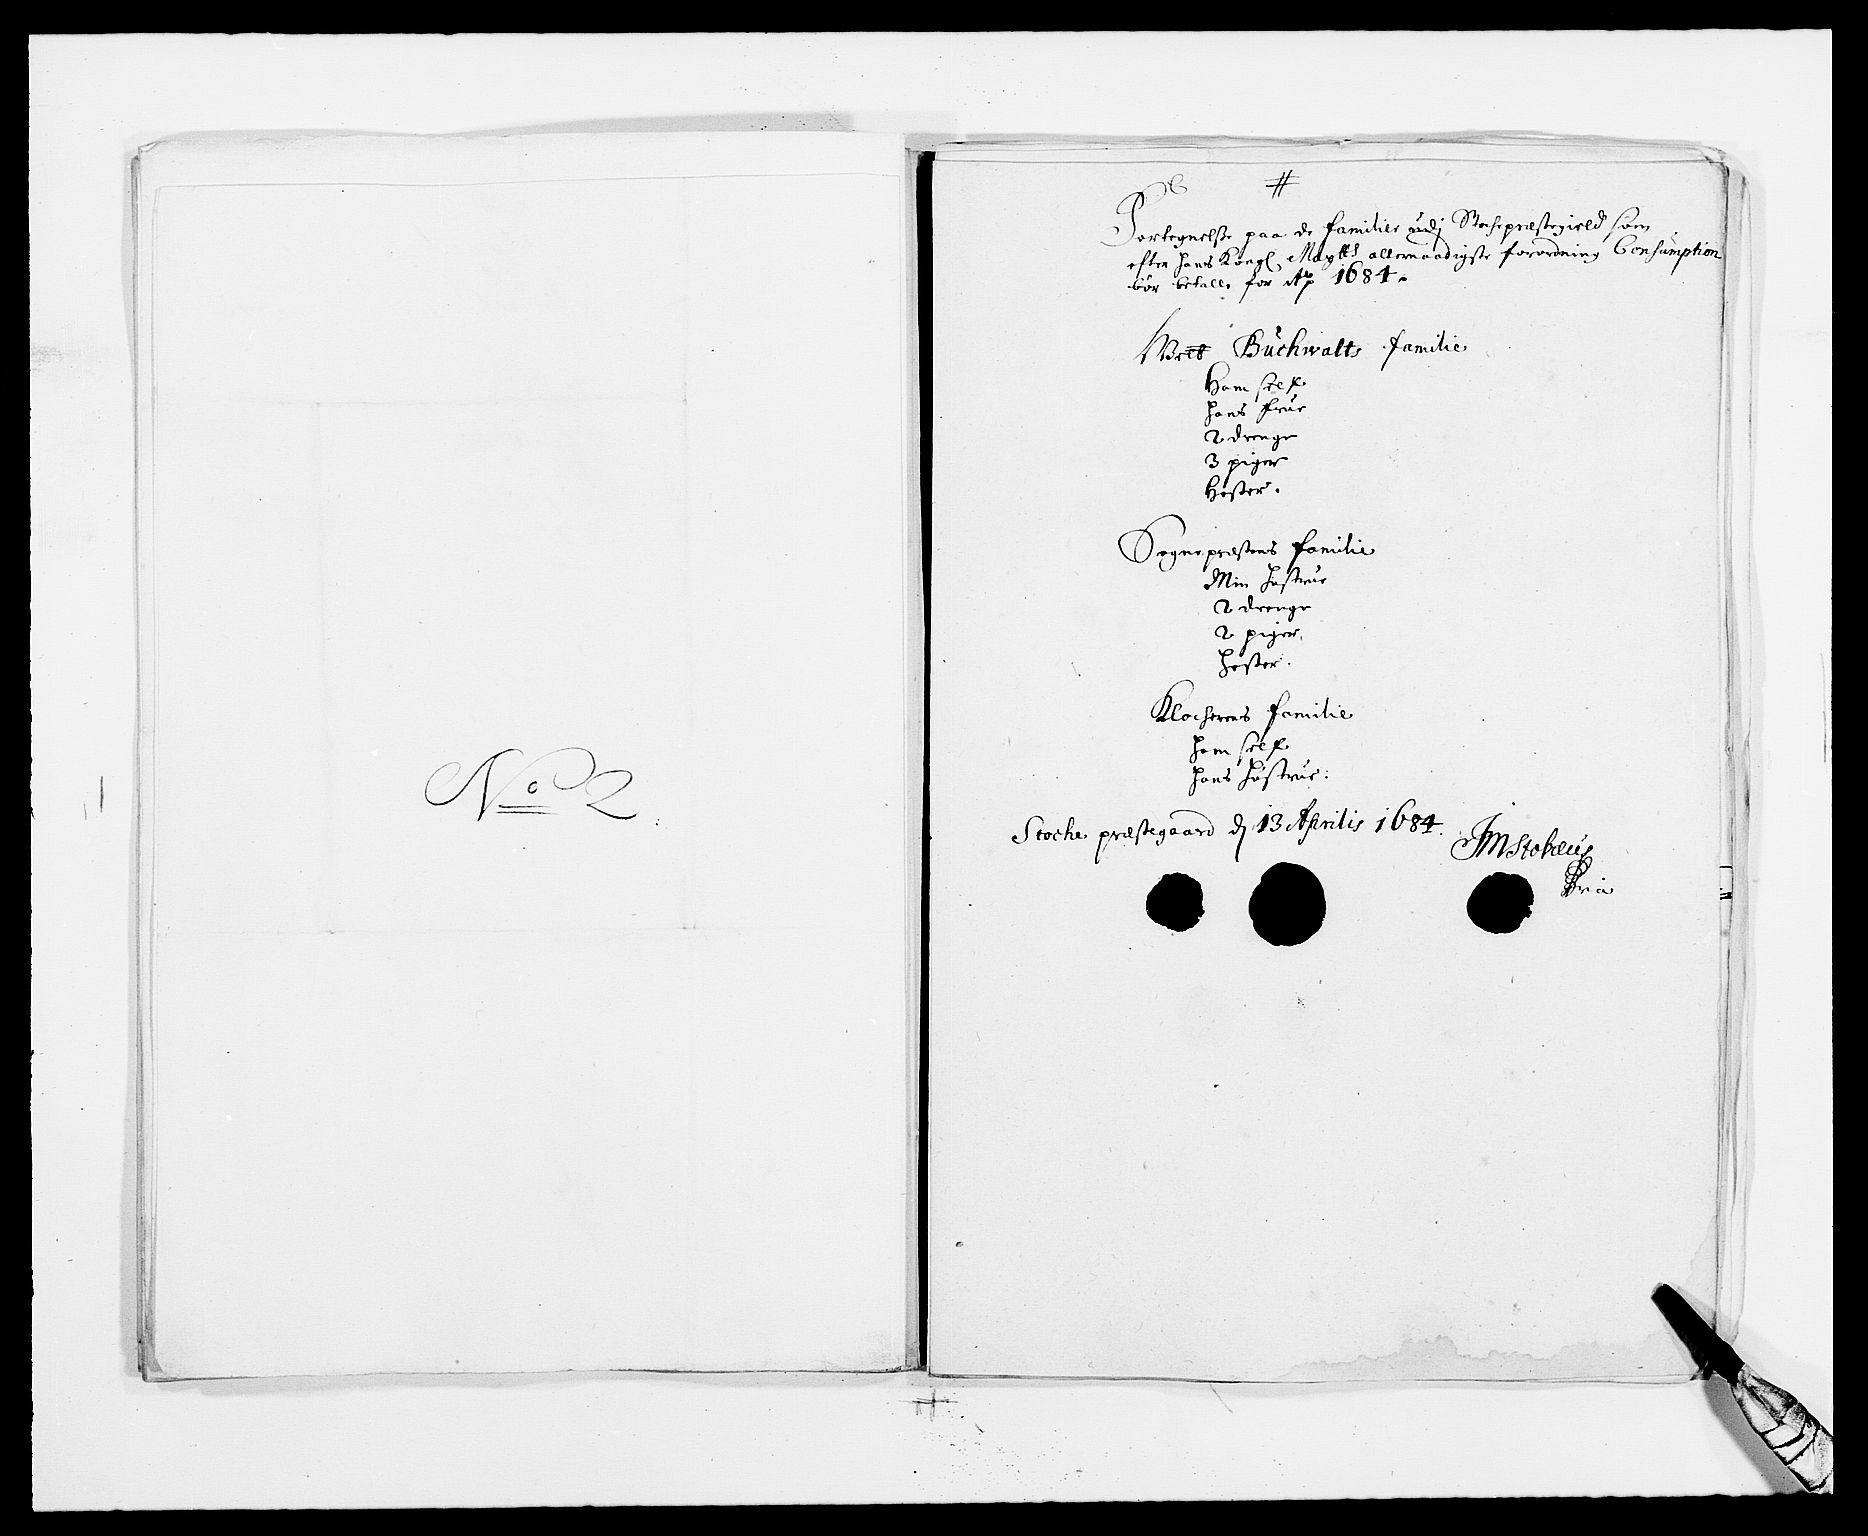 No 2
#
Fortegnelse paa de familier udj Stochepræstegield som
efter hans Kongl. Maytts allernaadigste forordning Consumption
bör betalle for Ap 1684.
Buchwalts familie
Ham self
hans frue
2 drenge
3 piger
Hester.
Sognepræstens familie
Min hustrue
2 drenge
2 piger,
hester.
Klocherens familie
ham self
hans hustrue:
Stoche præstegaard dj 13 Aprilis 1684.
JMStobæus